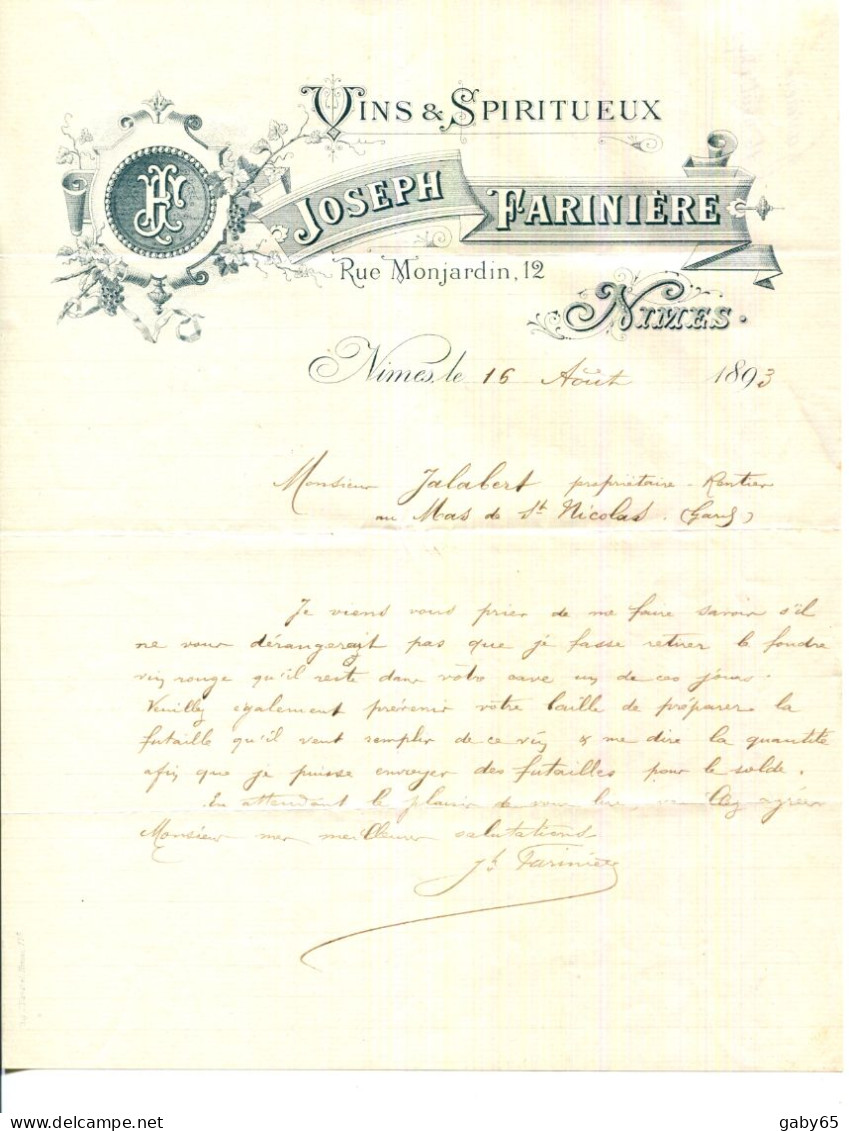 VINS & SPIRITUEUX
JF
JOSEPH FARINIÈRE
Rue Monjardin, 12
NIMES.
Nimes, le 16 Août 1893
Monsieur Jalabert propriétaire - Rentier
au Mas de St Nicolas. (Gard)
Je viens vous prier de me faire savoir s'il
ne vous dérangerait pas que je fasse retirer le foudre
vin rouge qu'il reste dans votre cave un de ces jours.
Veuillez également prévenir votre baille de préparer la
futaille qu'il veut remplir de ce vin & me dire la quantité
afin que je puisse envoyer des futailles pour le solde.
En attendant le plaisir de vous lire, veuillez agréer
Monsieur mes meilleures salutations
Jh Farinière
gaby65